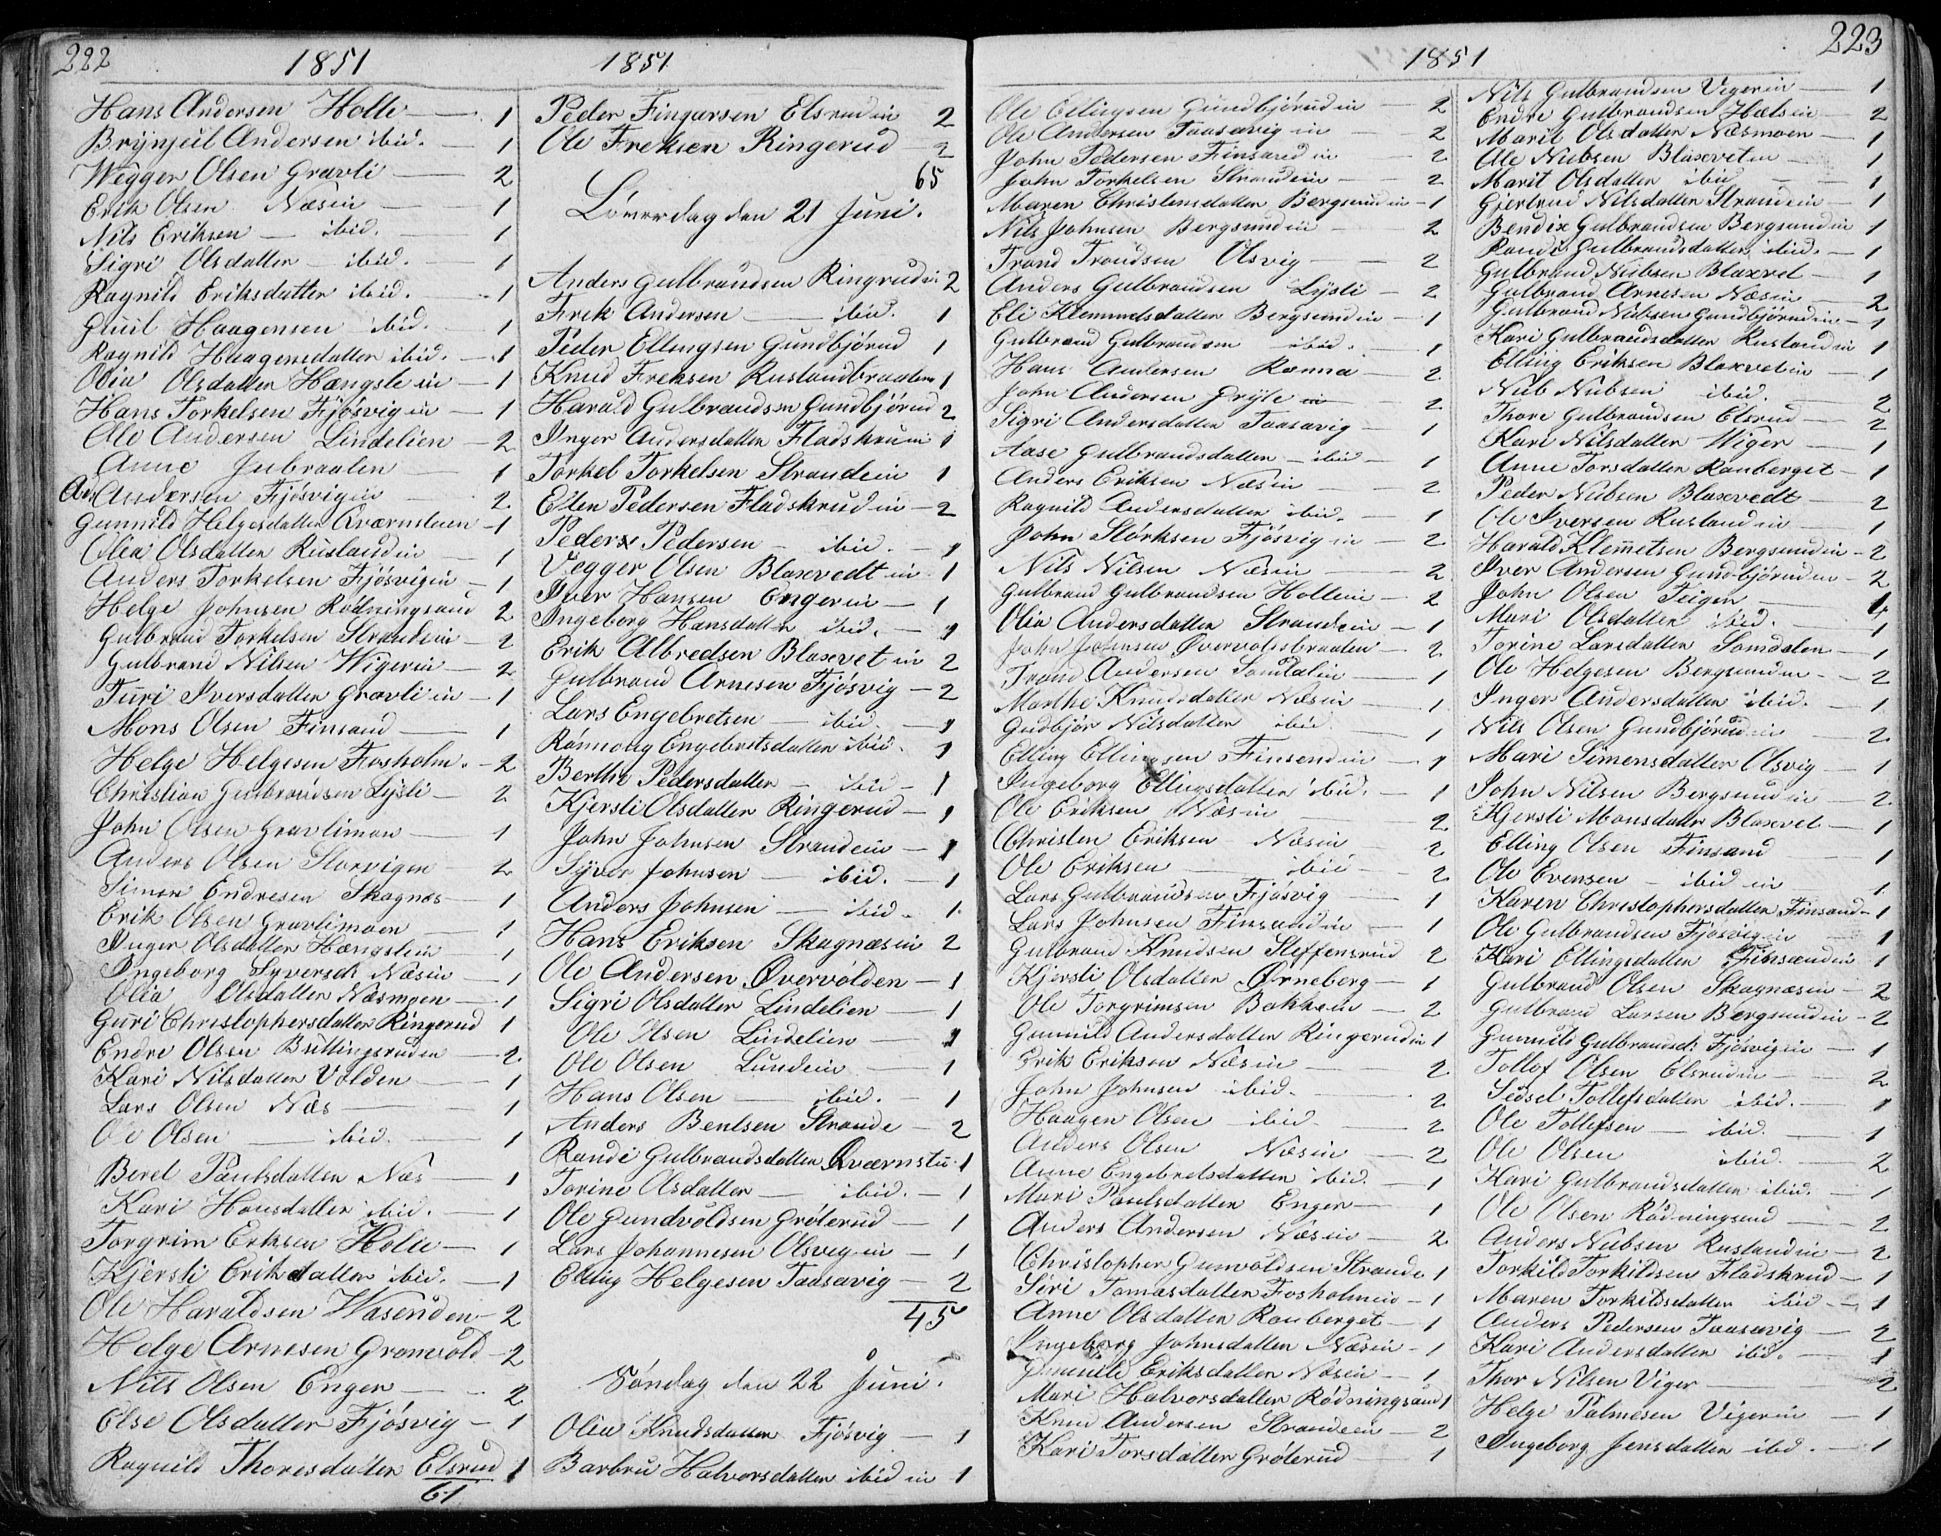 222
1851
Hans Andersen Holle — 1
Brynjul Andersen ibid. — 1
Wegger Olsen Gravli — 2
Erik Olsen Næsin — 1
Nils Eriksen — ibid. — 1
Sigri Olsdatter — ibid. — 1
Ragnild Eriksdatter ibid. — 1
Haagensen ibid. 1
Ragnild Haagensdatter ibid. — 1
Olia Olsdatter Hængsle in — 1
Hans Torkelsen Fjösvig in — 1
Ole Andersen Lindelien — 2
Anne Jubraaten — 1
And Andersen Fjösvigin — 2
Gunnild Helgesdatter Qværnsteien — 1
Olia Olsdatter Ruslandin — 1
Anders Torkelsen Fjösvigin — 1
Helge Johnsen Rødningsand 2
Gulbrand Torkelsen Strandein — 2
Gulbrand Nilsen Wigerin — 2
Turi Iversdatter Gravli in — 1
Mons Olsen Finsand — 1
Helge Helgesen Fosholm. — 2
Christian Gulbrandsen Lysli — 2
John Olsen Gravlimon — 1
Anders Olsen Storvigen 2
Simon Endresen Skagnæs — 1
Erik Olsen Gravlimoen — 1
Inger Olsdatter Hængslein — 1
Ingeborg Syversdt Næsin — 1
Olia Olsdatter Næsmoen — 1
Guri Christophersdatter Ringerud 1
Endre Olsen Büttingsruden — 2
Kari Nilsdatter Volden — 1
Lars Olsen Næs — 1
Ole Olsen — ibid. — 1
Berel Paulsdatter Næs — 1
Kari Hansdatter ibid. — 1
Torgrim Eriksen Holle — 1
Kjersti Eriksdatter ibid. — 1
Ole Haraldsen Wasenden — 2
Helge Arnesen Gronvold — 2
Nils Olsen Enger — 2
Else Olsdatter Fjösvig — 1
Ragnild Thoresdatter Elsrud 1
61
1851
Peder Fingarsen Elsrudin 2
Ole Freksen Ringerud — 2
65
Löverdag den 21 Juni.
Anders Gulbrandsen Ringrudin 2
Frek Andersen — ibid. 1
Peder Ellingsen Gundbjörud 1
Knud Freksen Ruslandbraaten 1
Harald Gulbrandsen Gundbjörud 2
Inger Andersdatter Fladskruin 1
Torkel Torkelsen Strandein 1
Ellen Pedersen Fladskrud in — 2
Peder Pedersen — ibid. — 1
Vegger Olsen Blaxvedt in 1
Iver Hansen Engerin — 1
Ingeborg Hansdatter ibid. — 1
Erik Albredsen Blaxvet in 2
Gulbrand Arnesen Fjösvig — 2
Lars Engebretsen — ibid. — 1
Rönnong Engebretsdatter ibid. 1
Berthe Pedersdatter — ibid — 1
Kjersti Olsdatter Ringerud — 1
John Johnsen Strandein — 1
Syver Johnsen — ibid. — 1
Anders Johnsen — ibid. 1
Hans Eriksen Skagnæsin 2
Ole Andersen Övervolden — 1
Sigri Olsdatter Lindelien — 1
Ole Olsen Lindelien — 1
Ole Olsen Lundein — 1
Hans Olsen — ibid. — 1
Anders Bentsen Strande — 2
Randi Gulbrandsdatter Qværnstu 1
Torine Olsdatter — ibid. — 1
Ole Gundvoldsen Gröterud — 1
Lars Johannesen Olsvig in — 1
Elling Helgesen Taasavig — 2
45
Söndag den 22 Juni.
Olia Knudsdatter Fjösvig — 1
Barbru Halvorsdatter ibid in — 1
223
1851
Ole Ellingsen Gundbjörud in — 2
Ole Andersen Taasavig in — 2
John Pedersen Finsand in — 2
John Torkelsen Strandein — 2
Maren Christensdatter Bergsundin — 1
Nils Johnsen Bergsundin — 2
Trond Trondsen Olsvig — 2
Anders Gulbrandsen Lysli — 2
Eli Klemmetsdatter Bergsundin — 1
Gulbrand Gulbrandsen ibid. — 1
Hans Andersen Rænna — 2
John Andersen Gryte — 2
Sigri Andersdatter Taasavig — 1
Aase Gulbrandsdatter — ibid — 1
Anders Eriksen Næsin — 2
Ragnild Andersdatter ibid. — 1
John Störksen Fjösvig in — 2
Nils Nilsen Næsin — 2
Gulbrand Gulbrandsen Hollein — 2
Olia Andersdatter Strandein — 1
John Johnsen Övervolsbraaten — 2
Trond Andersen Somdalin — 1
Marthe Knudsdatter Næsin — 1
Gudbjör Nilsdatter ibid — 1
Elling Ellingsen Finsandin — 1
Ingeborg Ellingsdatter ibid. — 1
Ole Eriksen Næsin — 2
Christen Eriksen Næsin 2
Ole Eriksen — ibid — 2
Lars Gulbrandsen Fjösvig — 1
Lars Johnsen Finsandin — 1
Gulbrand Knudsen Steffensrud 2
Kjersti Olsdatter Örneberg — 1
Ole Torgrimsen Bakken — 2
Gunnild Andersdatter Ringerudin 1
Erik Eriksen Næsin — 2
John Johnsen ibid. 2
Haagen Olsen ibid. — 2
Anders Olsen Næsin — 2
Anne Engebretsdatter ibid. — 1
Mari Paulsdatter Enger — 1
Anders Andersen Næsin — 2
Christopher Gunvoldsen Strande 1
Siri Tomasdatter Fosholmin — 1
Anne Olsdatter Rauberget — 1
Ingeborg Johnsdatter Næsin — 1
Eriksdatter Næsin — 1
Mari Halvorsdatter Rødningsand 1
Knud Andersen Strandein — 2
Kari Torsdatter Gröterud — 1
Nils Gulbrandsen Vigerin — 1
Endre Gulbrandsen Hælsin — 2
Marit Olsdatter Næsmoen — 1
Ole Nielsen Blaxveten — 1
Marit Olsdatter ibid — 1
Gjertrud Nilsdatter Strandein — 1
Bendix Gulbrandsen Bergsundin 1
Randi Gulbrandsdatter ibid. — 1
Gulbrand Nielsen Blaxvet — 1
Gulbrand Arnesen Næsin — 2
Gulbrand Nielsen Gundbjörudin — 1
Kari Gulbrandsdatter Ruslandin 1
Elling Eriksen Blaxvetin — 1
Niels Nielsen ibid. — 2
Thore Gulbrandsen Elsrud — 2
Kari Nilsdatter Wiger — 1
Anne Torsdatter Rauberget — 1
Peder Nielsen Blaxvedt — 2
Ole Iversen Ruslandin — 1
Harald Klemetsen Bergsundin — 2
Iver Andersen Gundbjöruden — 2
John Olsen Teigen — 1
Mari Olsdatter ibid. — 1
Torine Larsdatter Somdalen — 1
Ole Helgesen Bergsunden — 2
Inger Andersdatter ibid. — 1
Nils Olsen Gundbjörudin — 2
Mari Simensdatter Olsvig — 1
John Nilsen Bergsundin — 2
Kjersti Monsdatter Blaxvet — 1
Elling Olsen Finsand 1
Ole Evensen — ibid in — 1
Karen Christophersdatter Finsand — 1
Ole Gulbrandsen Fjösvigin — 1
Kari Ellingsdatter Finsandin 1
Gulbrand Olsen Skagnæsin — 2
Gulbrand Larsen Bergsundin — 2
Gunnild Gulbrandsdt Fjösvigin — 1
Tollof Olsen Elsrudin — 2
Sidsel Tollefsdatter ibid. — 1
Ole Tollefsen — ibid. — 1
Ole Olsen ibid. — 2
Kari Gulbrandsdatter ibid. — 1
Ole Olsen Rødningsand — 2
Anders Nielsen Ruslandin — 2
Torkild Torkildsen Fladskrud — 1
Maren Torkildsdatter ibid — 1
Anders Pedersen Taasavig — 2
Kari Andersdatter ibid. — 1
Thor Nilsen Viger — 2
Helge Palmesen Vigerin — 1
Ingeborg Jensdatter ibid. — 1